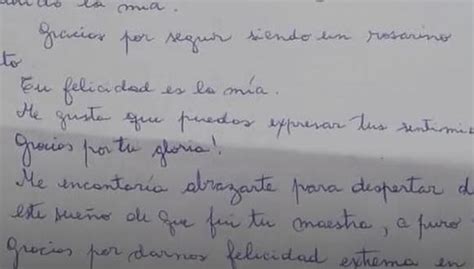 la mía.
Gracias por seguir siendo un rosarino
to
Tu felicidad es la mía.
Me gusta que puedas expresar tus sentimie
Gracias por tu gloria!
Me encantaría abrazarte para despertar d
este sueño de que fui tu maestra, a puro
Gracias por darnos felicidad extrema en